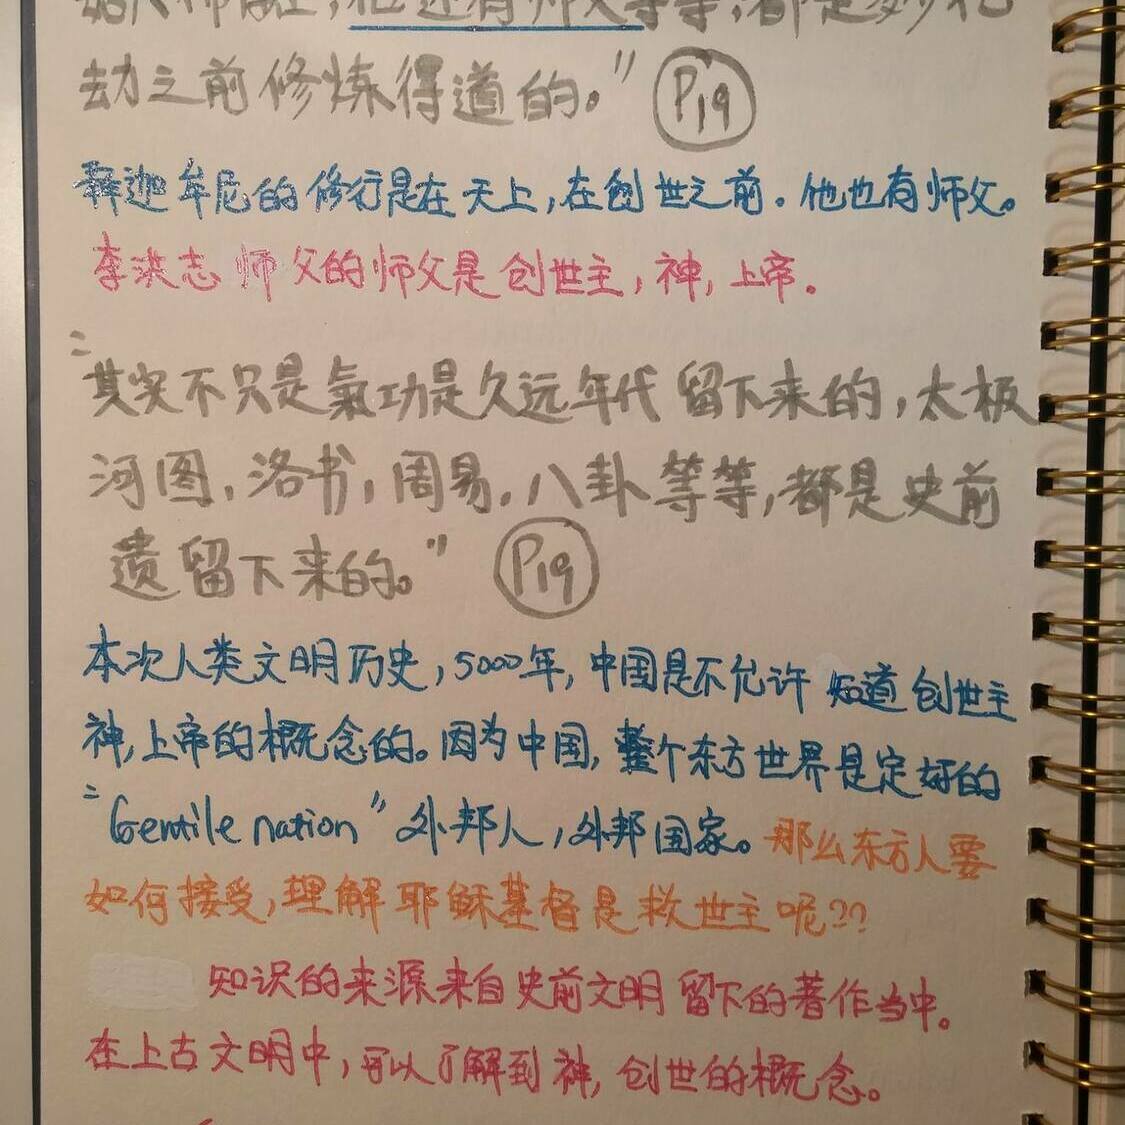 他还有师父等等，都是
劫之前修炼得道的。” P19
释迦牟尼的修行是在天上，在创世之前。他也有师父。
李洪志师父的师父是创世主，神，上帝。
“其实不只是氣功是久远年代留下来的，太极
河图，洛书，周易，八卦等等，都是史前
遗留下来的。” P19
本次人类文明历史，5000年，中国是不允许知道创世主
神，上帝的概念的。因为中国，整个东方世界是定好的
“Gentile nation” 外邦人，外邦国家。那么东方人要
如何接受，理解耶稣基督是救世主呢??
知识的来源来自史前文明留下的著作当中。
在上古文明中，可以了解到神，创世的概念。